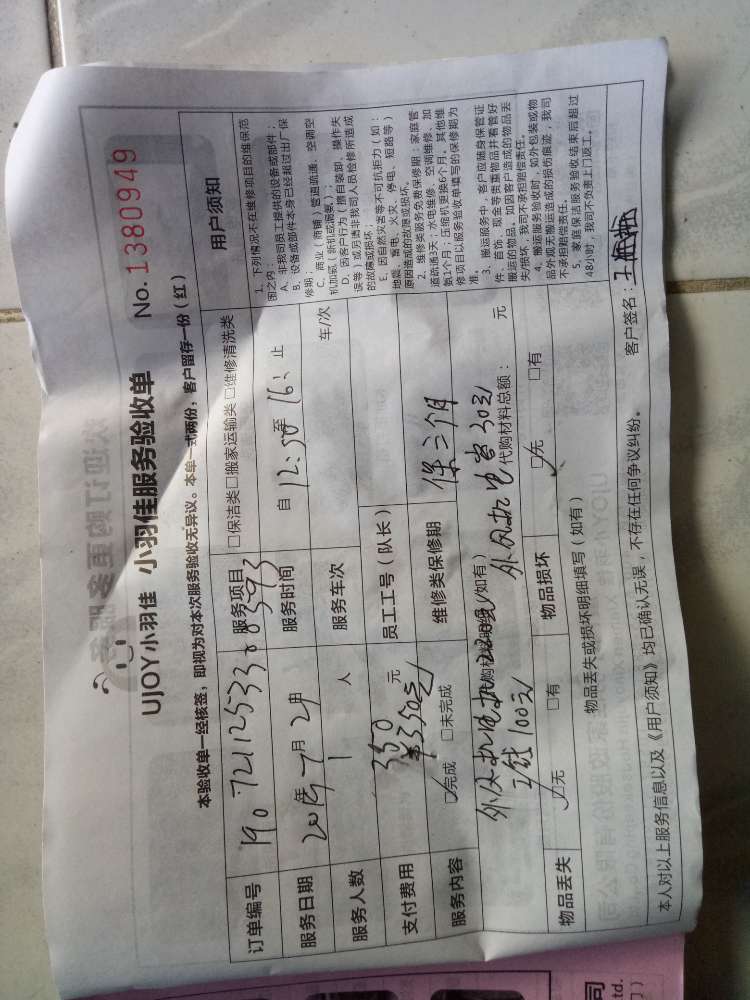 UJOY小羽佳 小羽佳服务验收单 No.1380949
本验收单一经核签，即视为对本次服务验收无异议。本单一式两份，客户留存一份（红）
订单编号 1907211253308393 服务项目 □保洁类□搬家运输类 □维修清洗类
服务日期 2019年7月2日 服务时间 自 12:30 至 16: 止
服务人数 1 人 服务车次 车/次
支付费用 350 元 员工工号（队长）
服务内容 ☑完成 □未完成 维修类保修期 保三个月
代购材料明细（如有）
外风机电机220元 外风机电容30元
工钱100元 代购材料总额： 元
物品丢失 ☑无 □有 物品损坏 ☑无 □有
物品丢失或损坏明细填写（如有）
用户须知
1、下列情况不在维修项目的维保范
围之内：
A、非我司员工提供的设备或部件；
B、设备或部件本身已经超过出厂保
修期；C、商业（商铺）管道疏通、空调空
机加氨（新机或漏氨）；
D、因客户行为（擅自装卸、操作失
误等）或另请非我司人员检修所造成
的故障或损坏；
E、因自然灾害等不可抗拒力（如：
地震、雷电、火灾、停电、短路等）
原因造成的故障或损坏。
2、维修类服务免费保修期：家庭管
道疏通3天；水电维修、空调维修、加
氨1个月；压缩机更换6个月，其他维
修项目以服务验收单填写的保修期为
准。
3、搬运服务中，客户应随身保管证
件、首饰、现金等贵重物品并看管好
搬运的物品，如因客户造成的物品丢
失/损坏，我司不承担赔偿责任。
4、搬运服务验收时，如外包装或物
品外观无搬运造成的损伤痕迹，我司
不承担赔偿责任。
5、家庭保洁服务验收结束后超过
48小时，我司不负责上门返工。
本人对以上服务信息以及《用户须知》均已确认无误，不存在任何争议纠纷。 客户签名：
司
td.
门）